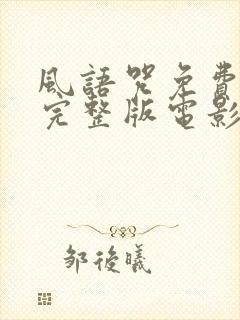 風語咒免費
完整版電影
邹後曦